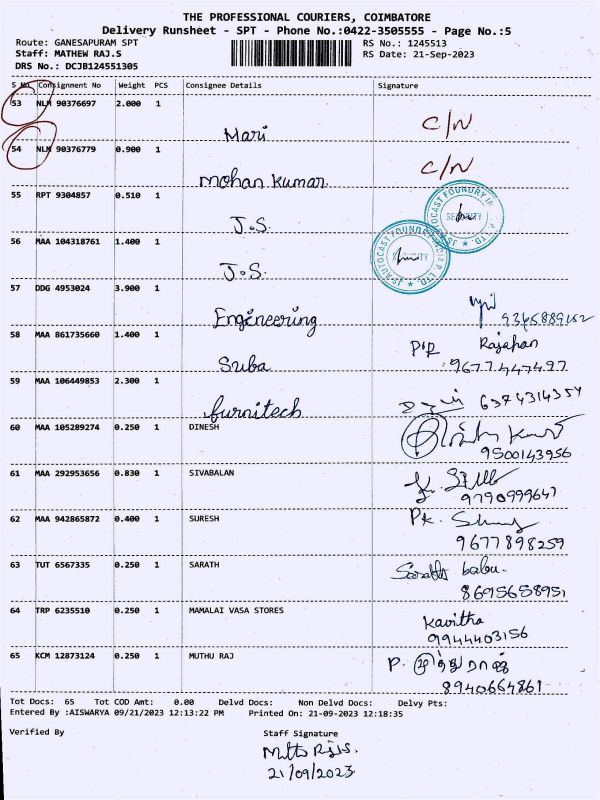 THE PROFESSIONAL COURIERS, COIMBATORE
Delivery Runsheet - SPT - Phone No.:0422-3505555 - Page No.:5
Route: GANESAPURAM SPT RS No.: 1245513
Staff: MATHEW RAJ.S RS Date: 21-Sep-2023
DRS No.: DCJB124551305
S No. Consignment No Weight PCS Consignee Details Signature
53 NLM 90376697 2.000 1 Mari C/N
54 NLM 90376779 0.900 1 Mohan Kumar C/N
55 RPT 9304857 0.510 1 J.S.
56 MAA 104318761 1.400 1 J.S.
57 DDG 4953024 3.900 1 Engineering
58 MAA 861735660 1.400 1 Suba Rajahan
9677447497
59 MAA 106449853 2.300 1 furnitech 6374314354
60 MAA 105289274 0.250 1 DINESH
9500143956
61 MAA 292953656 0.830 1 SIVABALAN
9790999647
62 MAA 942865872 0.400 1 SURESH PK.
9677898259
63 TUT 6567335 0.250 1 SARATH Sarath babu.
8695658951
64 TRP 6235510 0.250 1 MAMALAI VASA STORES Kavitha
9944403156
65 KCM 12873124 0.250 1 MUTHU RAJ P.
8940664861
Tot Docs: 65 Tot COD Amt: 0.00 Delvd Docs: Non Delvd Docs: Delvy Pts:
Entered By :AISWARYA 09/21/2023 12:13:22 PM Printed On: 21-09-2023 12:18:35
Verified By Staff Signature
21/09/2023